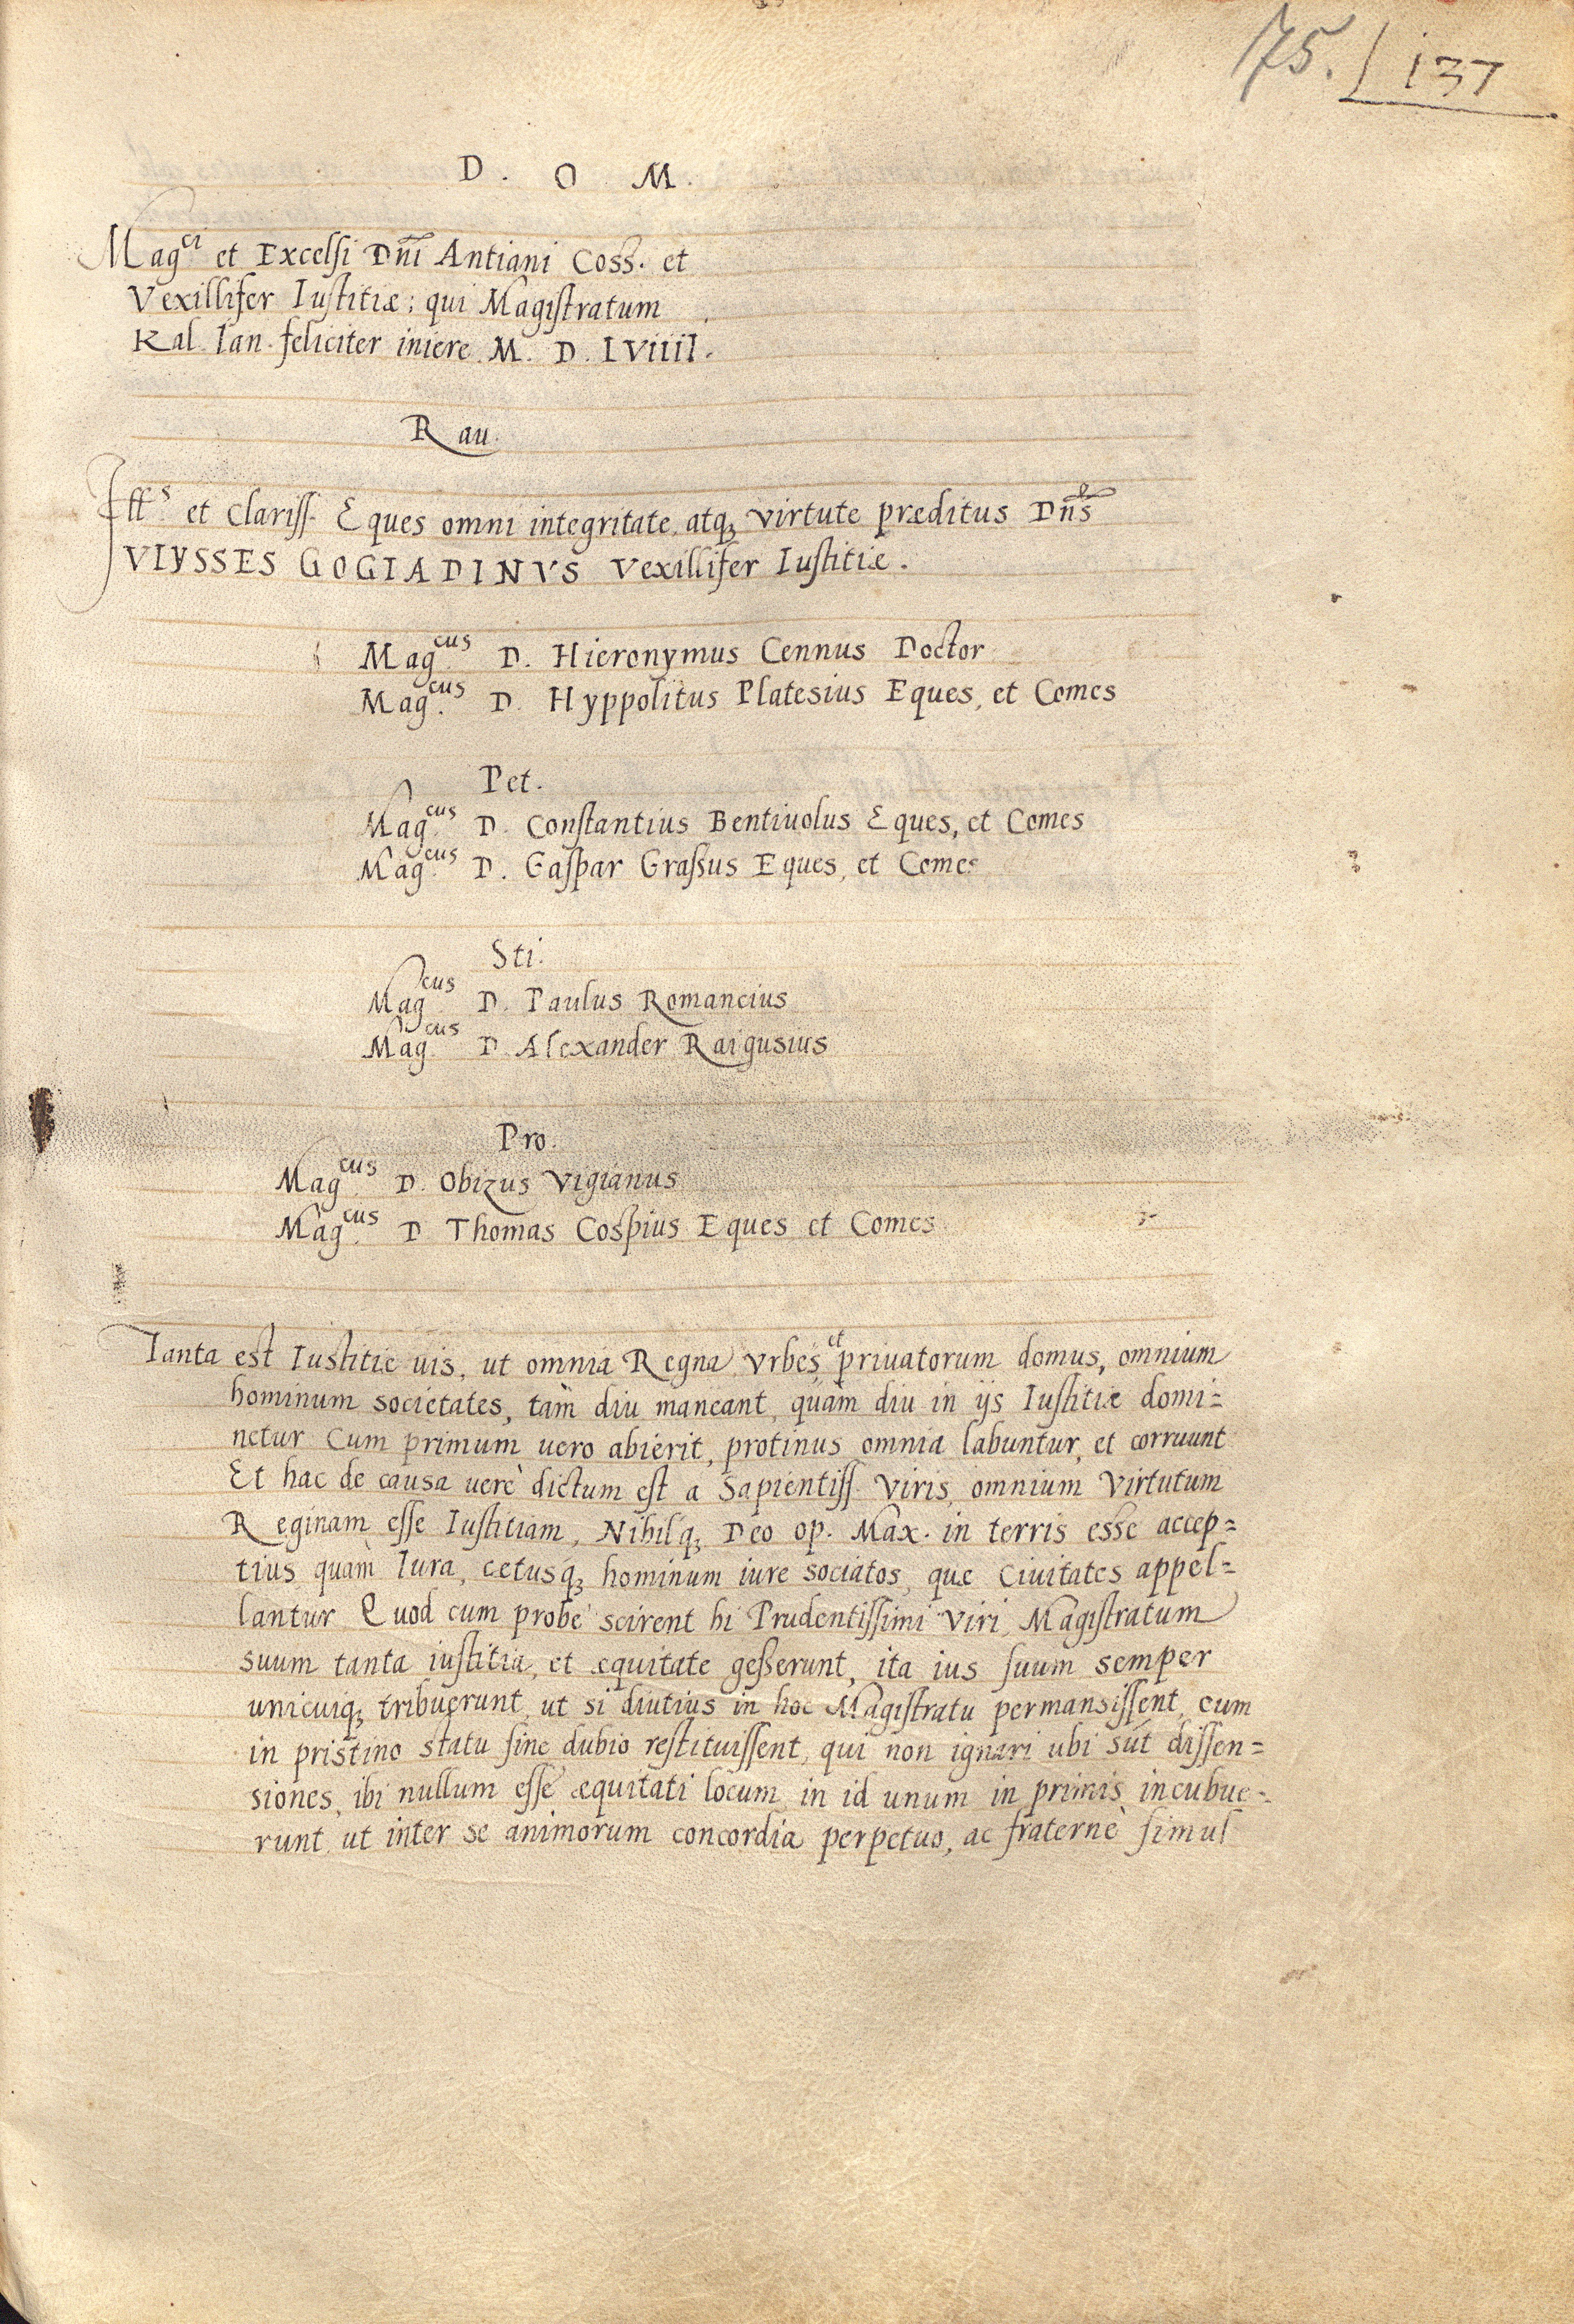 75. | 137
D. O M.
Mag.ci et Excelsi Dñi Antiani Coss. et
Vexillifer Iustitiæ; qui Magistratum
Kal. Ian. feliciter iniere M. D. LVIIII.
Rau.
Ill.s et Clariss. Eques omni integritate, atq; virtute præditus Dñs
VLYSSES GOGIADINVS Vexillifer Iustitiæ.
Mag.cus D. Hieronymus Cennus Doctor
Mag.cus D. Hyppolitus Platesius Eques, et Comes
Pet.
Mag.cus D. Constantius Bentiuolus Eques, et Comes
Mag.cus D. Gaspar Grassus Eques, et Comes
Sti.
Mag.cus D. Paulus Romancius
Mag.cus D. Alexander Raigusius
Pro.
Mag.cus D. Obizus Vigianus
Mag.cus D Thomas Cospius Eques et Comes
Tanta est Iustitie uis, ut omnia Regna, Vrbes, et priuatorum domus, omnium
hominum societates, tam diu maneant, quàm diu in ijs Iustitiæ domi=
netur Cum primum uero abierit, protinus omnia labuntur, et corruunt
Et hac de causa uerè dictum est a Sapientiss. Viris, omnium Virtutum
Reginam esse Iustitiam, Nihilq; Deo op. Max. in terris esse accep=
tius quàm Iura, cetusq; hominum iure sociatos, quæ Ciuitates appel=
lantur Quod cum probè scirent hi Prudentissimi Viri, Magistratum
suum tanta iustitia, et æquitate gesserunt, ita ius suum semper
unicuiq; tribuerunt, ut si diutius in hoc Magistratu permansissent, cum
in pristino statu sine dubio restituissent, qui non ignari ubi sūt dissen=
siones, ibi nullum esse æquitati locum in id unum in primis incubue=
runt, ut inter se animorum concordia perpetuo, ac fraternè simul